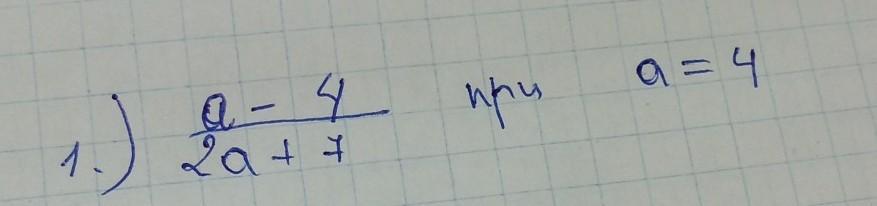 1.) (a - 4)/(2a + 7) при a = 4